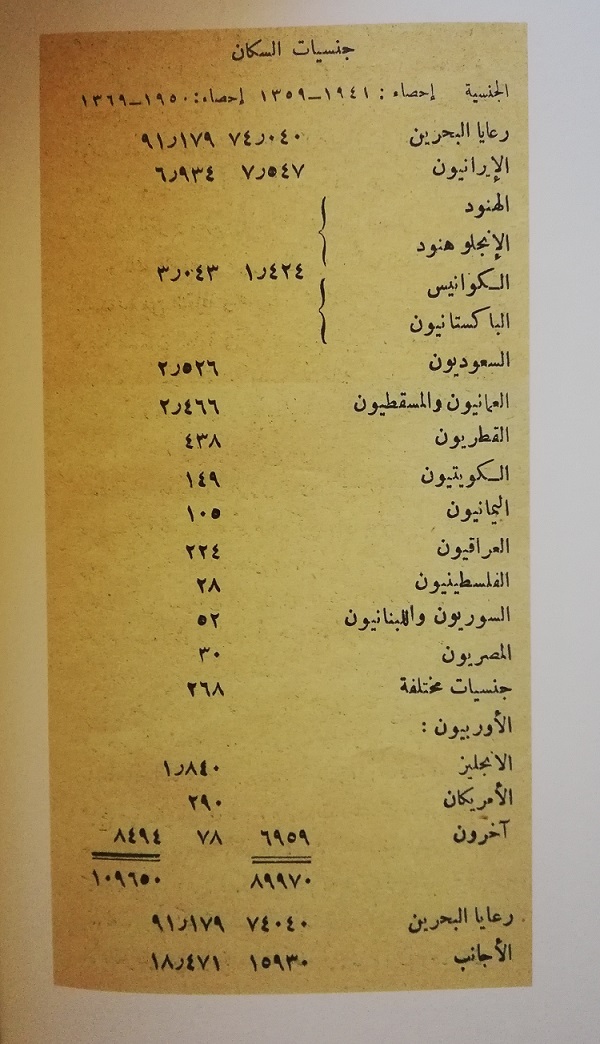 جنسيات السكان
الجنسية إحصاء : ١٩٤١–١٣٥٩ إحصاء: ١٩٥٠–١٣٦٩
رعايا البحرين ٧٤٫٠٤٠ ٩١٫١٧٩
الإيرانيون ٧٫٥٤٧ ٦٫٩٣٤
الهنود
الإنجلو هنود
الكوانيس ١٫٤٢٤ ٣٫٠٤٣
الباكستانيون
السعوديون ٢٫٥٢٦
العمانيون والمسقطيون ٢٫٤٦٦
القطريون ٤٣٨
الكويتيون ١٤٩
اليمانيون ١٠٥
العراقيون ٢٢٤
الفلسطينيون ٢٨
السوريون واللبنانيون ٥٢
المصريون ٣٠
جنسيات مختلفة ٢٦٨
الأوربيون :
الانجليز ١٫٨٤٠
الأمريكان ٢٩٠
آخرون ٦٩٥٩ ٧٨ ٨٤٩٤
٨٩٩٧٠ ١٠٩٦٥٠
رعايا البحرين ٧٤٠٤٠ ٩١٫١٧٩
الأجانب ١٥٩٣٠ ١٨٫٤٧١